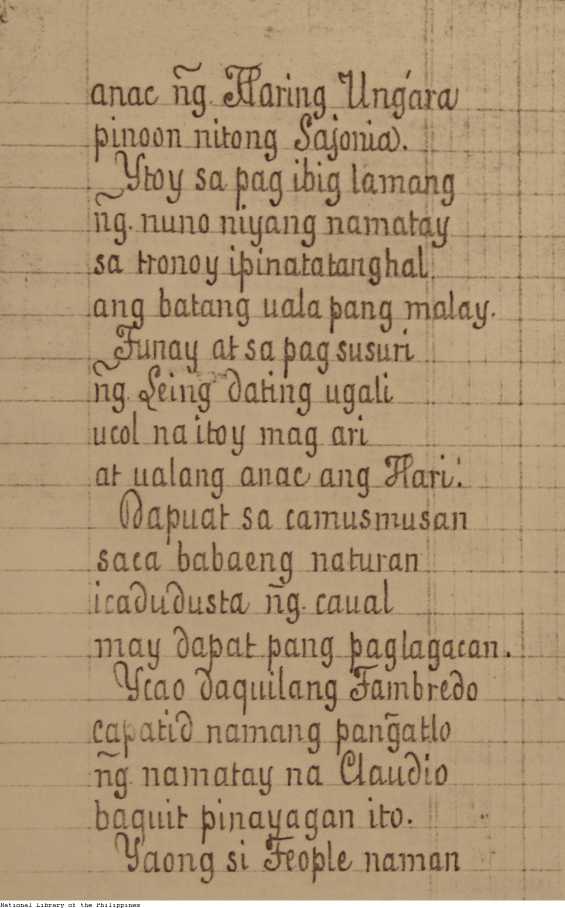 anac ñg. Haring Ungara
pinoon nitong Sajonia.
Ytoy sa pag ibig lamang
ñg. nuno niyang namatay
sa tronoy ipinatatanghal
ang batang uala pang malay.
Tunay at sa pag susuri
ñg. Leing dating ugali
ucol na itoy mag ari
at ualang anac ang Hari.
Dapuat sa camusmusan
saca babaeng naturan
icadudusta ñg. caual
may dapat pang paglagacan.
Ycao daquilang Fambredo
capatid namang pañgatlo
ñg namatay na Claudio
baquit pinayagan ito.
Yaong si Feople naman
National Library of the Philippines